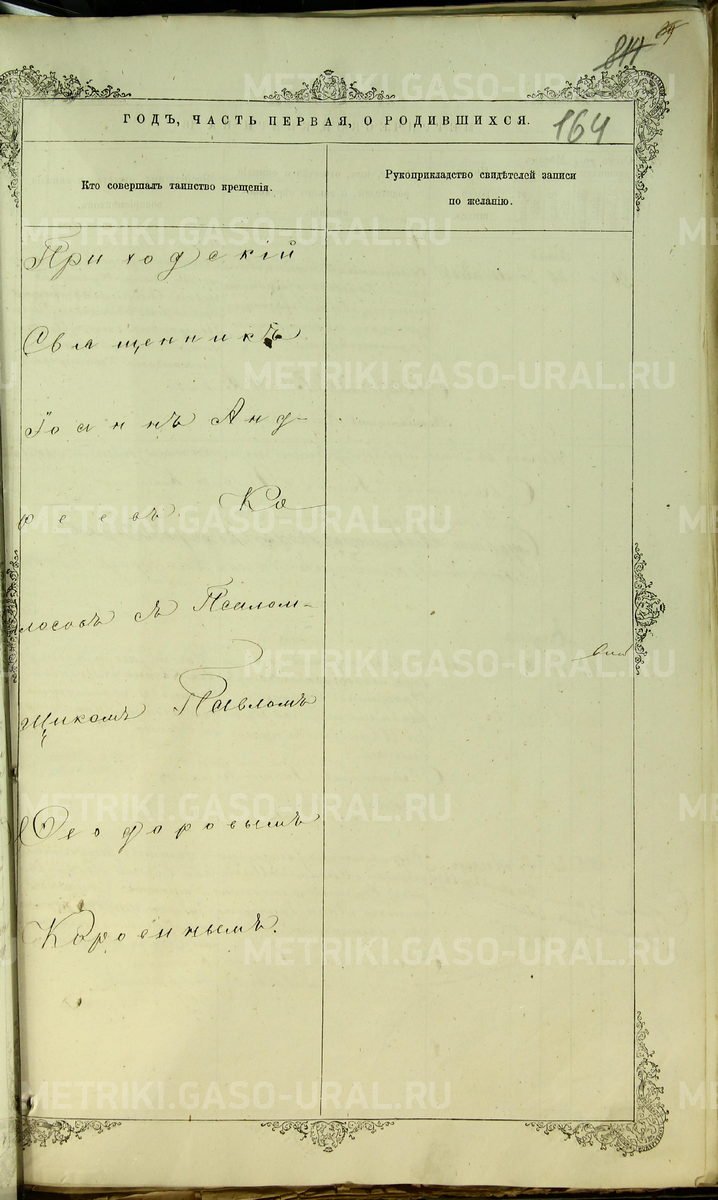 814
164
ГОДЪ, ЧАСТЬ ПЕРВАЯ, О РОДИВШИХСЯ.
Кто совершалъ таинство крещенія.
Рукоприкладство свидѣтелей записи
по желанію.
Приходскій
Священникъ
Іоаннъ Анд-
реевъ Ко
лосовъ съ Псалом-
щикомъ Павломъ
Ѳеодоровымъ
METRIKI.GASO-URAL.RU